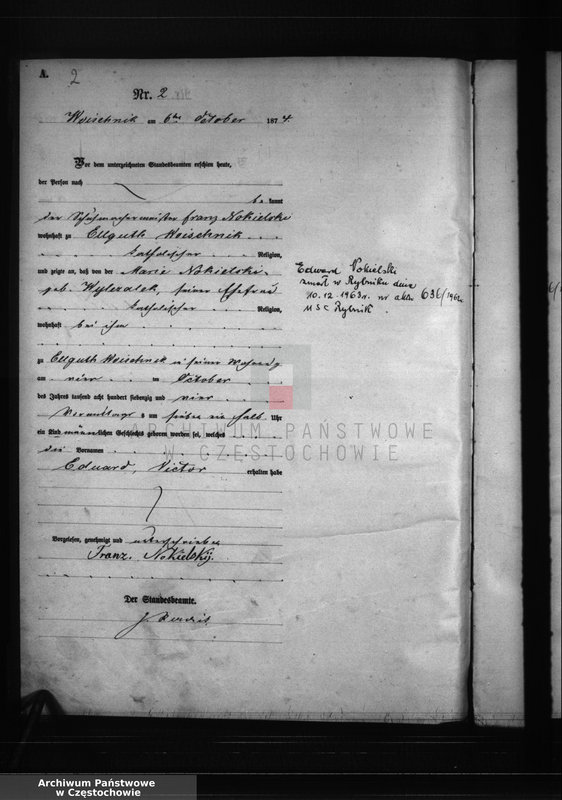 A.
2
Nr. 2
Woischnik am 6ten October 1874.
Vor dem unterzeichneten Standesbeamten erschien heute,
der Person nach
be kannt
der Schuhmachermeister Franz Nokielski
wohnhaft zu Ellguth Woischnik
katholischer Religion,
und zeigte an, daß von der Marie Nokielski
geb. Wylezalek, seiner Ehefrau
katholischer Religion,
wohnhaft bei ihm
zu Ellguth Woischnik in seiner Wohnung
am vier im October
des Jahres tausend acht hundert siebenzig und vier
Vormittags um sieben ein halb Uhr
ein Kind männlichen Geschlechts geboren worden sei, welches
die Vornamen
Eduard, Victor
erhalten habe
Vorgelesen, genehmigt und unterschrieben
Franz. Nokielsky.
Der Standesbeamte.
Edward Nokielski
zmarł w Rybniku dnia
10.12.1963r. nr aktu 636/1963
USC Rybnik.
ARCHIWUM PAŃSTWOWE
W CZĘSTOCHOWIE
Archiwum Państwowe
w Częstochowie